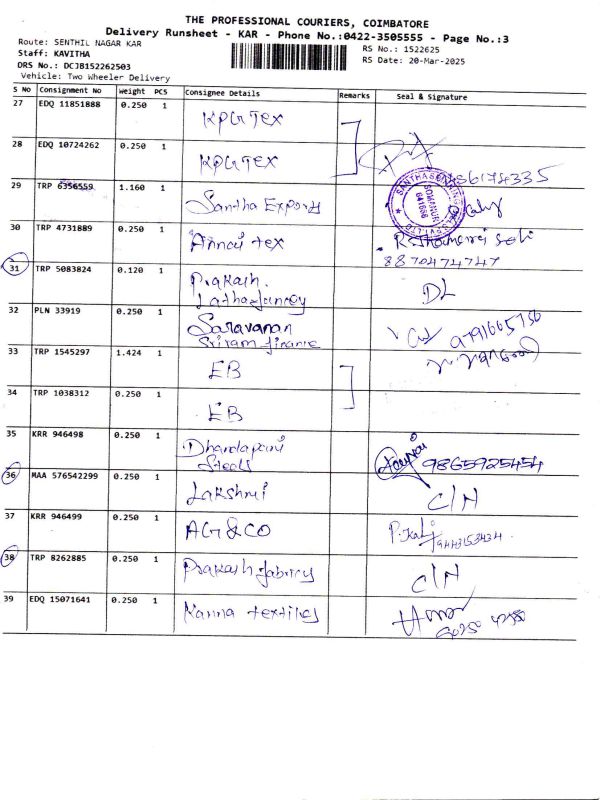 THE PROFESSIONAL COURIERS, COIMBATORE
Delivery Runsheet - KAR - Phone No.:0422-3505555 - Page No.:3
Route: SENTHIL NAGAR KAR
RS No.: 1522625
Staff: KAVITHA
RS Date: 20-Mar-2025
DRS No.: DCJB152262503
Vehicle: Two Wheeler Delivery
S No Consignment No Weight PCS Consignee Details Remarks Seal & Signature
27 EDQ 11851888 0.250 1 KPG Tex
28 EDQ 10724262 0.250 1 KPG Tex
29 TRP 6356559 1.160 1 Santha Exports
30 TRP 4731889 0.250 1 Annai tex
8870474747
31 TRP 5083824 0.120 1 Prakash.
DL
32 PLN 33919 0.250 1 Saravanan
Sriram finance
33 TRP 1545297 1.424 1 EB
34 TRP 1038312 0.250 1 EB
35 KRR 946498 0.250 1 Dhandapani
Steels 9865925454
36 MAA 576542299 0.250 1 Lakshmi C/N
37 KRR 946499 0.250 1 AG & CO
38 TRP 8262885 0.250 1 Prakash C/N
39 EDQ 15071641 0.250 1 Kanna textiles